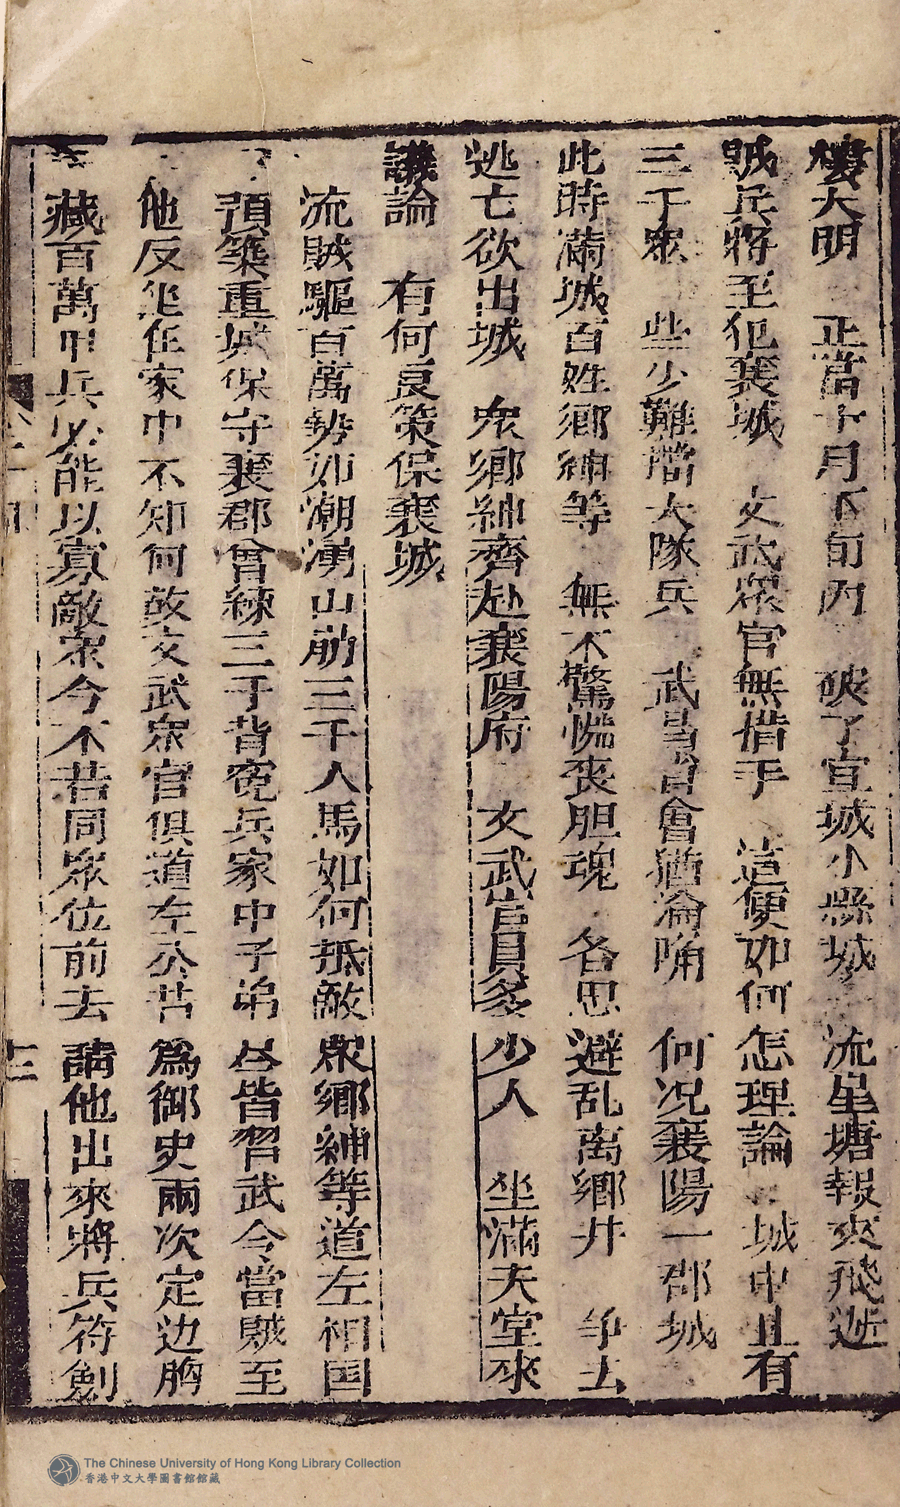 大明　正當十月下旬內　破了宣城小縣城　流星塘報來飛逝
賊兵將至犯襄城　文武眾官無措手　這便如何怎理論　城中且有
三千眾　些少難當大隊兵　武昌會猶淪陷　何况襄陽一郡城
此時滿城百姓鄉紳等　無不驚慌喪胆魂　各思避乱离鄉井　争去
逃亡欲出城　众鄉紳齊赴襄陽府　文武官員多少人　坐滿大堂來
議論　有何良策保襄城
流賊驅百萬勢如潮湧山崩三千人馬如何抵敵眾鄉紳等道左相国
預築重城保守襄郡曾練三千背嵬兵家中子弟皆習武今當賊至
他反坐在家中不知何故文武眾官俱道左公昔為御史兩次定边胸
藏百萬甲兵必能以寡敵眾今不若同眾位前去請他出來將兵符劍
十二
The Chinese University of Hong Kong Library Collection
香港中文大學圖書館館藏